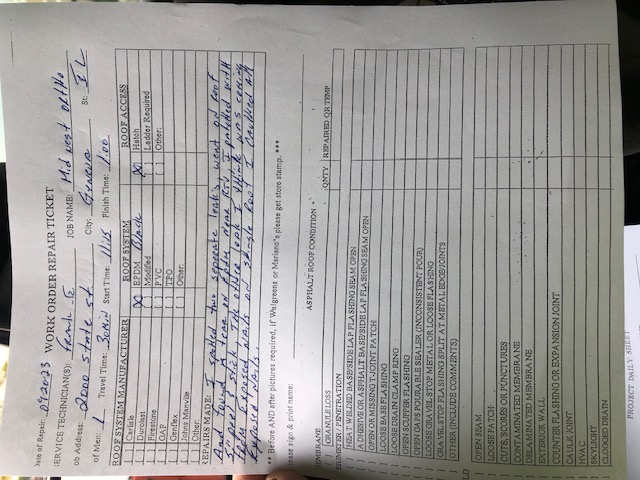 Date of Repair: 09-20-23 WORK ORDER REPAIR TICKET
SERVICE TECHNICIAN(S): Frank E JOB NAME: Mid west ortho
ob Address: 2000 state st City: Geneva St: IL
of Men: 1 Travel Time: 30min Start Time: 11:15 Finish Time: 1:00
ROOF SYSTEM MANUFACTURER ROOF SYSTEM ROOF ACCESS
[ ] Carlisle [X] EPDM Black [X] Hatch
[ ] Durolast [ ] Modified [ ] Ladder Required
[ ] Firestone [ ] PVC [ ] Other:
[ ] GAF [ ] TPO
[ ] Genflex [ ] Other:
[ ] Johns Manville
[ ] Other:
REPAIRS MADE: I spotted two seperate leak's, went on roof
And found a tear on Epdm near RTU, I patched with
5" peel & stick. The other leak I think was coming
from Exposed nails on shingle Roof I caulked All
Exposed nails.
** Before AND after pictures required, if Walgreens or Mariano's please get store stamp. ***
lease sign & print name:
ASPHALT ROOF CONDITION
EMBRANE QNTY REPAIRED QR TEMP
[ ] GRANULE LOSS
ERIMETER / PENETRATION
[ ] HEAT WELDED BASE/SIDE LAP FLASHING SEAM OPEN
[ ] ADHESIVE OR ASPHALT BASE/SIDE LAP FLASHING SEAM OPEN
[ ] OPEN OR MISSING T-JOINT PATCH
[ ] LOOSE BASE FLASHING
[ ] LOOSE DRAIN CLAMP RING
[ ] OPEN SCUPPER FLASHING
[ ] OPEN GAPS POURABLE SEALER (INCONSISTENT POUR)
[ ] LOOSE GRAVEL STOP METAL OR LOOSE FLASHING
[ ] GRAVEL STOP FLASHING SPLIT AT METAL EDGE/JOINTS
[ ] OTHER (INCLUDE COMMENTS)
LD
] OPEN SEAM
] LOOSE PATCH
] CUTS, SCORES OR PUNCTURES
] CONTAMINATED MEMBRANE
] DELAMINATED MEMBRANE
] EXTERIOR WALL
] COUNTER FLASHING OR EXPANSION JOINT
] CAULK JOINT
] HVAC
] SKYLIGHT
] CLOGGED DRAIN
PROJECT DAILY SHEET